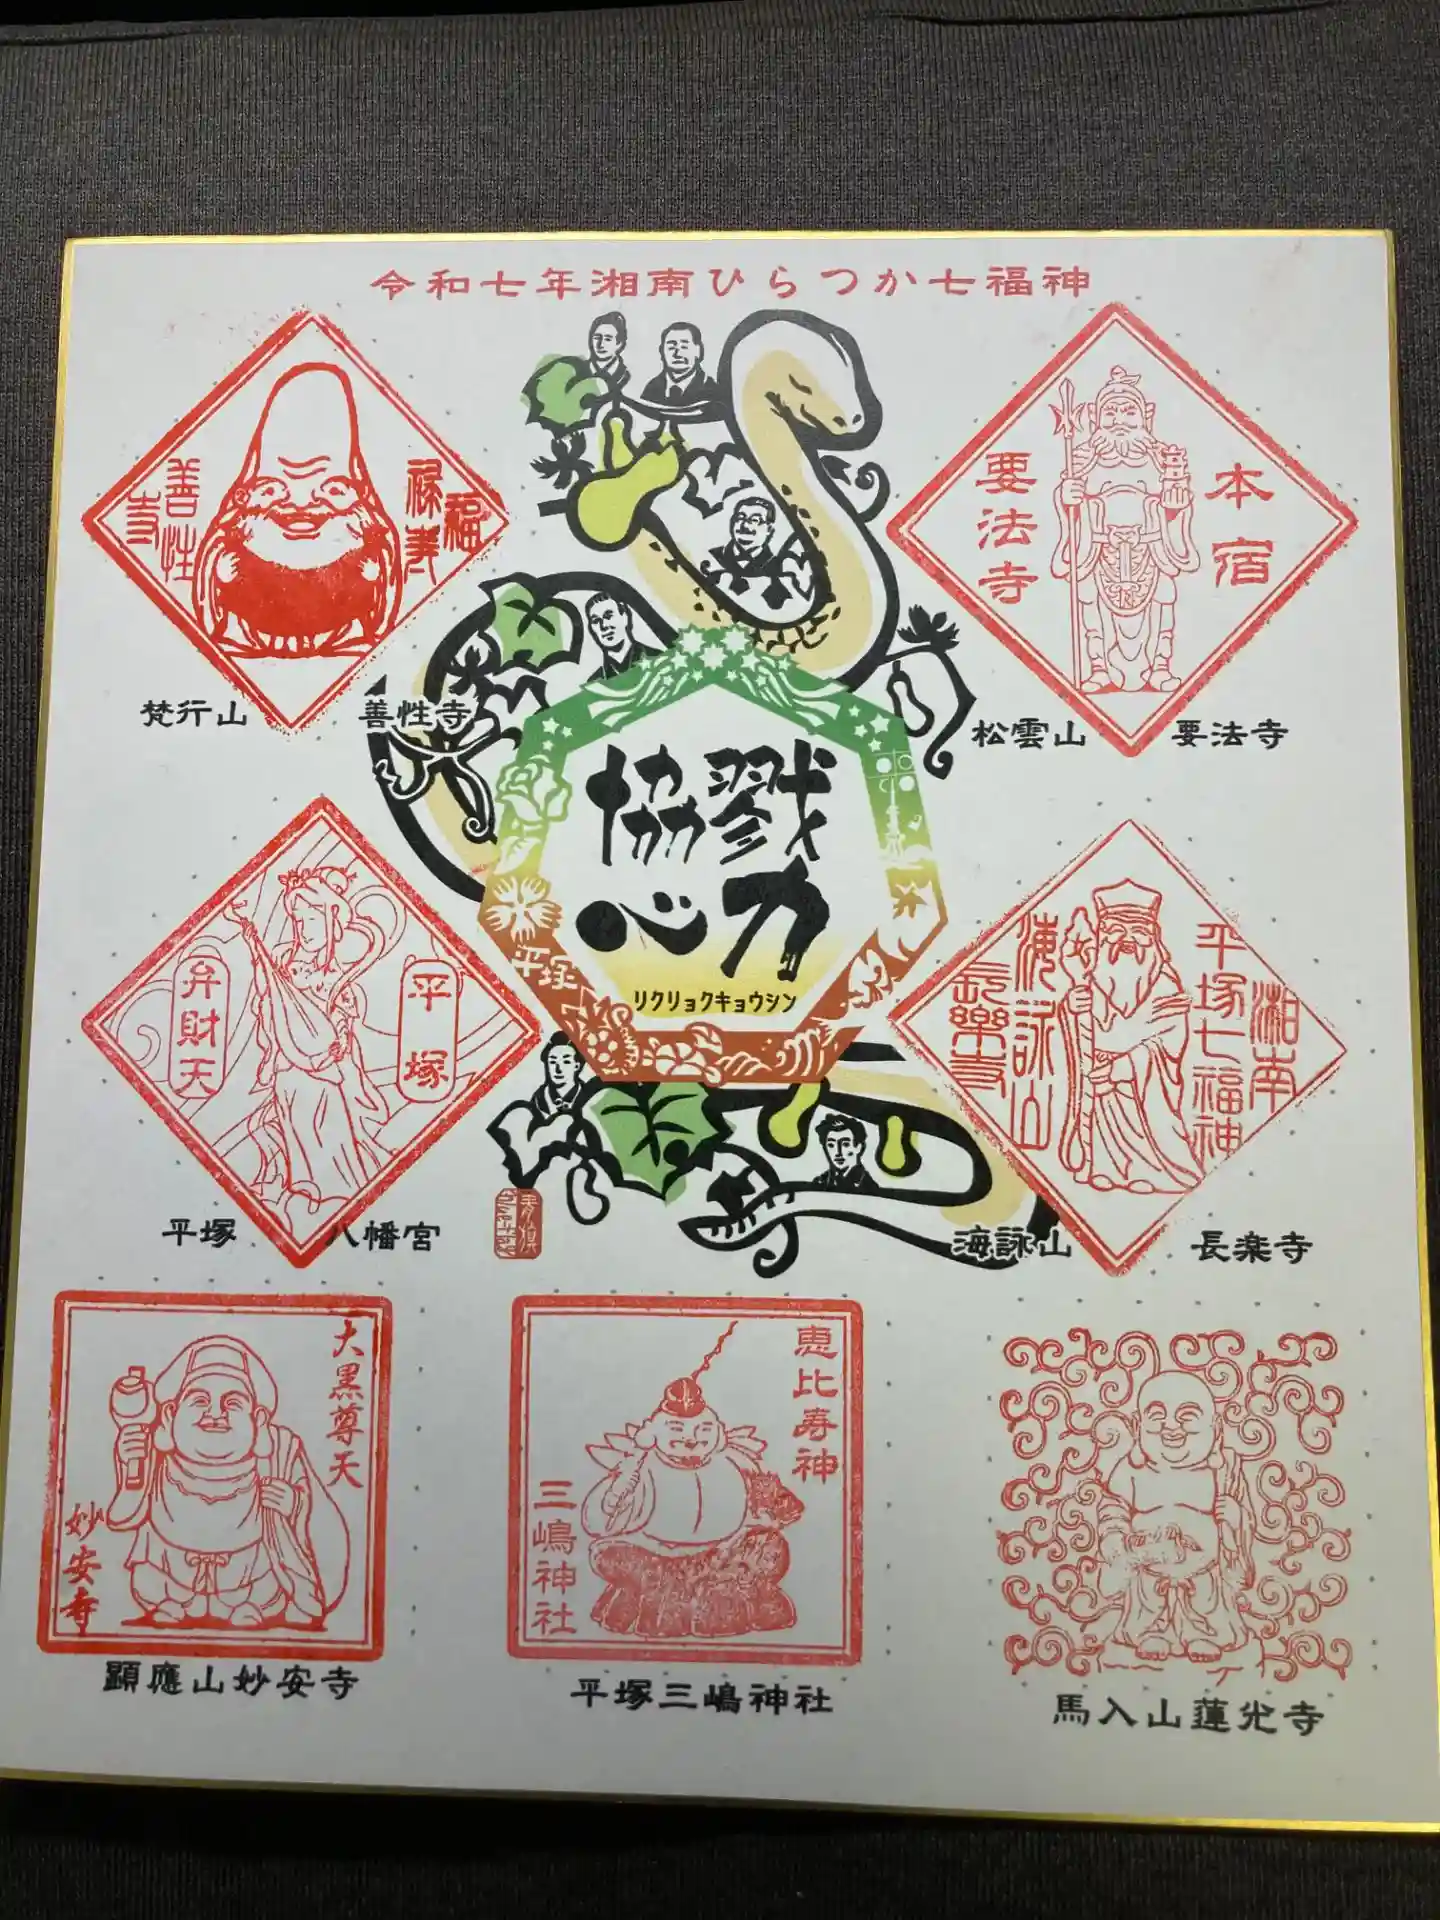 令和七年湘南ひらつか七福神
福禄寿
善性寺
梵行山 善性寺
本宿
要法寺
松雲山 要法寺
戮力
協心
リクリョクキョウシン
平塚
平塚
弁財天
平塚 八幡宮
湘南
平塚七福神
海詠山
長樂寺
海詠山 長楽寺
大黒尊天
妙安寺
顕應山妙安寺
恵比寿神
三嶋神社
平塚三嶋神社
馬入山蓮光寺